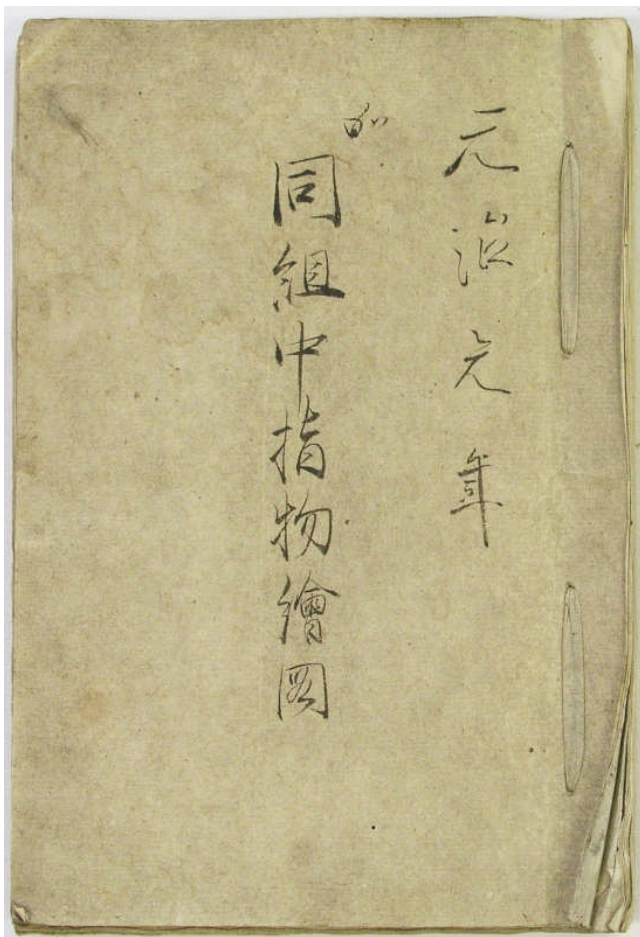 元治元年
同組中指物繪図